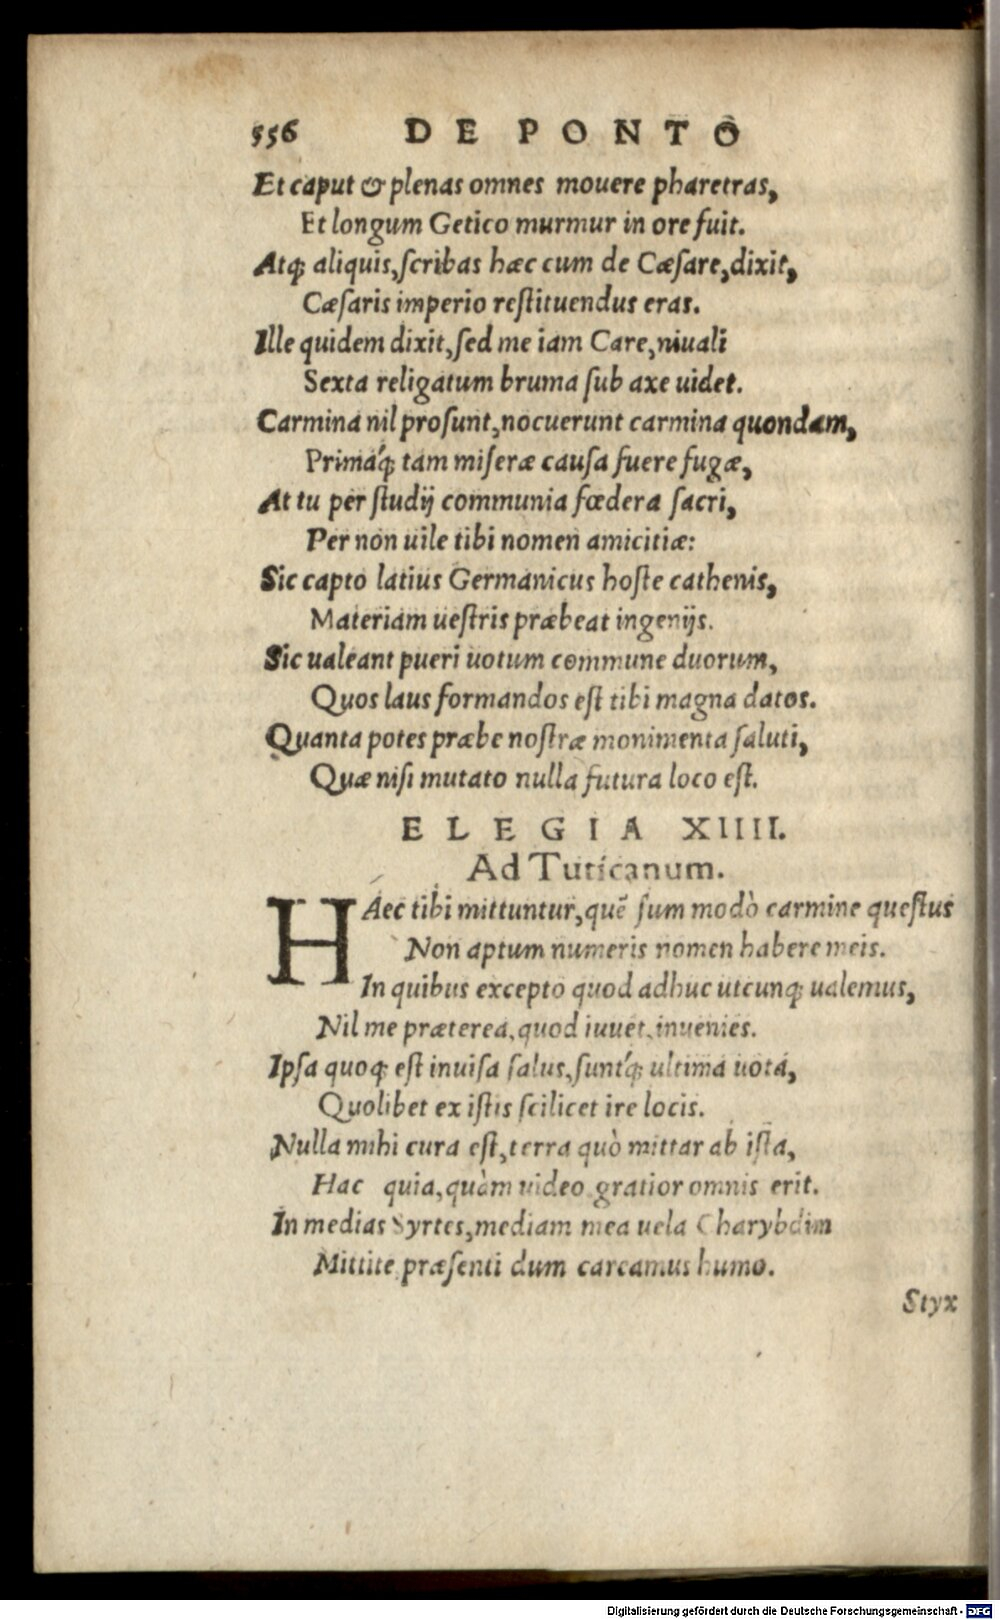 556 DE PONTO
Et caput & plenas omnes mouere pharetras,
Et longum Getico murmur in ore fuit.
Atq; aliquis, ſcribas hæc cum de Cæſare, dixit,
Cæſaris imperio reſtituendus eras.
Ille quidem dixit, ſed me iam Care, niuali
Sexta religatum bruma ſub axe uidet.
Carmina nil proſunt, nocuerunt carmina quondam,
Primaq́; tam miſeræ cauſa fuere fugæ,
At tu per ſtudij communia fœdera ſacri,
Per non uile tibi nomen amicitiæ:
Sic capto latius Germanicus hoſte cathenis,
Materiam ueſtris præbeat ingenijs.
Sic ualeant pueri uotum commune duorum,
Quos laus formandos eſt tibi magna datos.
Quanta potes præbe noſtræ monimenta ſaluti,
Quæ niſi mutato nulla futura loco eſt.
ELEGIA XIIII.
Ad Tuticanum.
HAec tibi mittuntur, quē ſum modò carmine queſtus
Non aptum numeris nomen habere meis.
In quibus excepto quod adhuc utcunq; ualemus,
Nil me præterea, quod iuuet, inuenies.
Ipſa quoq; eſt inuiſa ſalus, ſuntq́; ultima uota,
Quolibet ex iſtis ſcilicet ire locis.
Nulla mihi cura eſt, terra quò mittar ab iſta,
Hac quia, quàm uideo gratior omnis erit.
In medias Syrtes, mediam mea uela Charybdim
Mittite præſenti dum careamus humo.
Styx
Digitalisierung gefördert durch die Deutsche Forschungsgemeinschaft - DFG